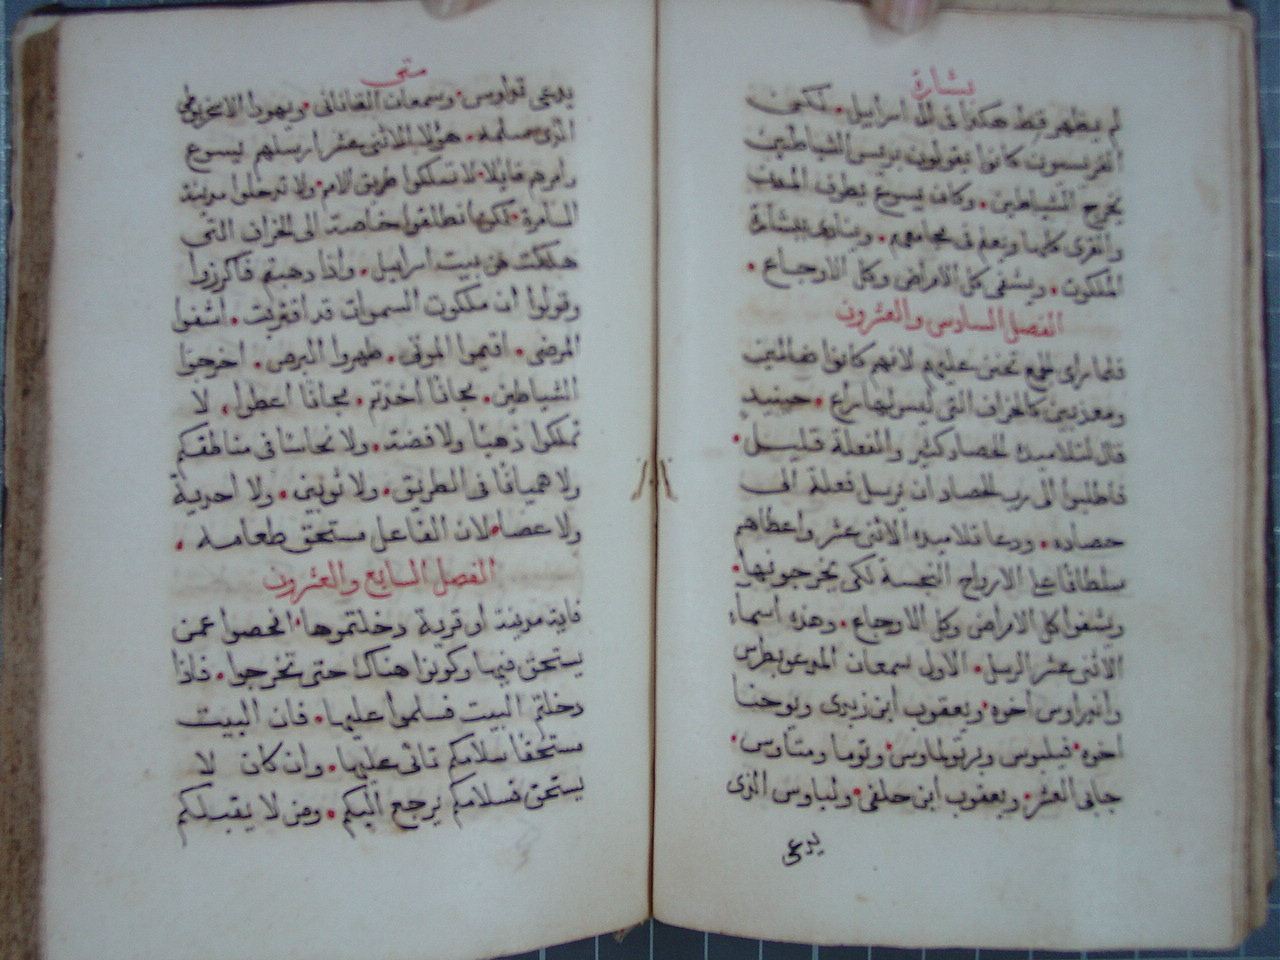 بشارة
لم يظهر قط هكذا فى ال اسراييل. لكن
الفريسيون كانوا يقولون بريس الشياطين
يخرج الشياطين. وكان يسوع يطوف المدن
والقرى كلها ويعلم فى مجامعهم. وينادى ببشارة
الملكوت. ويشفى كل الامراض وكل الاوجاع.
الفصل السادس والعشرون
فلما راى الجمع تحنن عليهم لانهم كانوا ضالين
ومعذبين كالخراف التى ليس لها راع. حينيد
قال لتلاميذه الحصاد كثير والفعلة قليل.
فاطلبوا الى رب الحصاد ان يرسل فعلة الى
حصاده. ودعا تلاميذه الاثنى عشر واعطاهم
سلطانا على الارواح النجسة لكى يخرجونها.
ويشفوا كل الامراض وكل الاوجاع. وهذه اسماء
الاثنى عشر الرسل. الاول سمعان المدعو بطرس
واندراوس اخوه. ويعقوب ابن زبدى ويوحنا
اخوه. فيلبوس وبرتولماوس. وتوما ومتاوس.
جابى العشر. ويعقوب ابن حلفى. ولباوس الذى
يدعى
متى
يدعى تداوس. وسمعان القانانى. ويهودا الاسخريوطى
الذى سلمه. هولا الاثنى عشر ارسلهم يسوع
وامرهم قايلا. لا تسلكوا طريق الامم. ولا تدخلوا مدينة
السامرة. لكن انطلقوا خاصة الى الخراف التى
هلكت من بيت اسراييل. واذا دهبتم فاكرزوا
وقولوا ان ملكوت السموات قد اقتربت. اشفوا
المرضى. اقيموا الموتى. طهروا البرص. اخرجوا
الشياطين. مجانا اخدتم. مجانا اعطوا. لا
تملكوا ذهبا ولا فضة. ولا نحاسا فى مناطقكم
ولا هميانا فى الطريق. ولا ثوبين. ولا احدية
ولا عصا. لان الفاعل مستحق طعامه.
الفصل السابع والعشرون
فاية مدينة او قرية دخلتموها. افحصوا عمن
يستحق فيها وكونوا هناك حتى تخرجوا. فاذا
دخلتم البيت فسلموا عليها. فان البيت
مستحقا سلامكم تاتى عليها. وان كان لا
يستحق فسلامكم يرجع اليكم. ومن لا يقبلكم